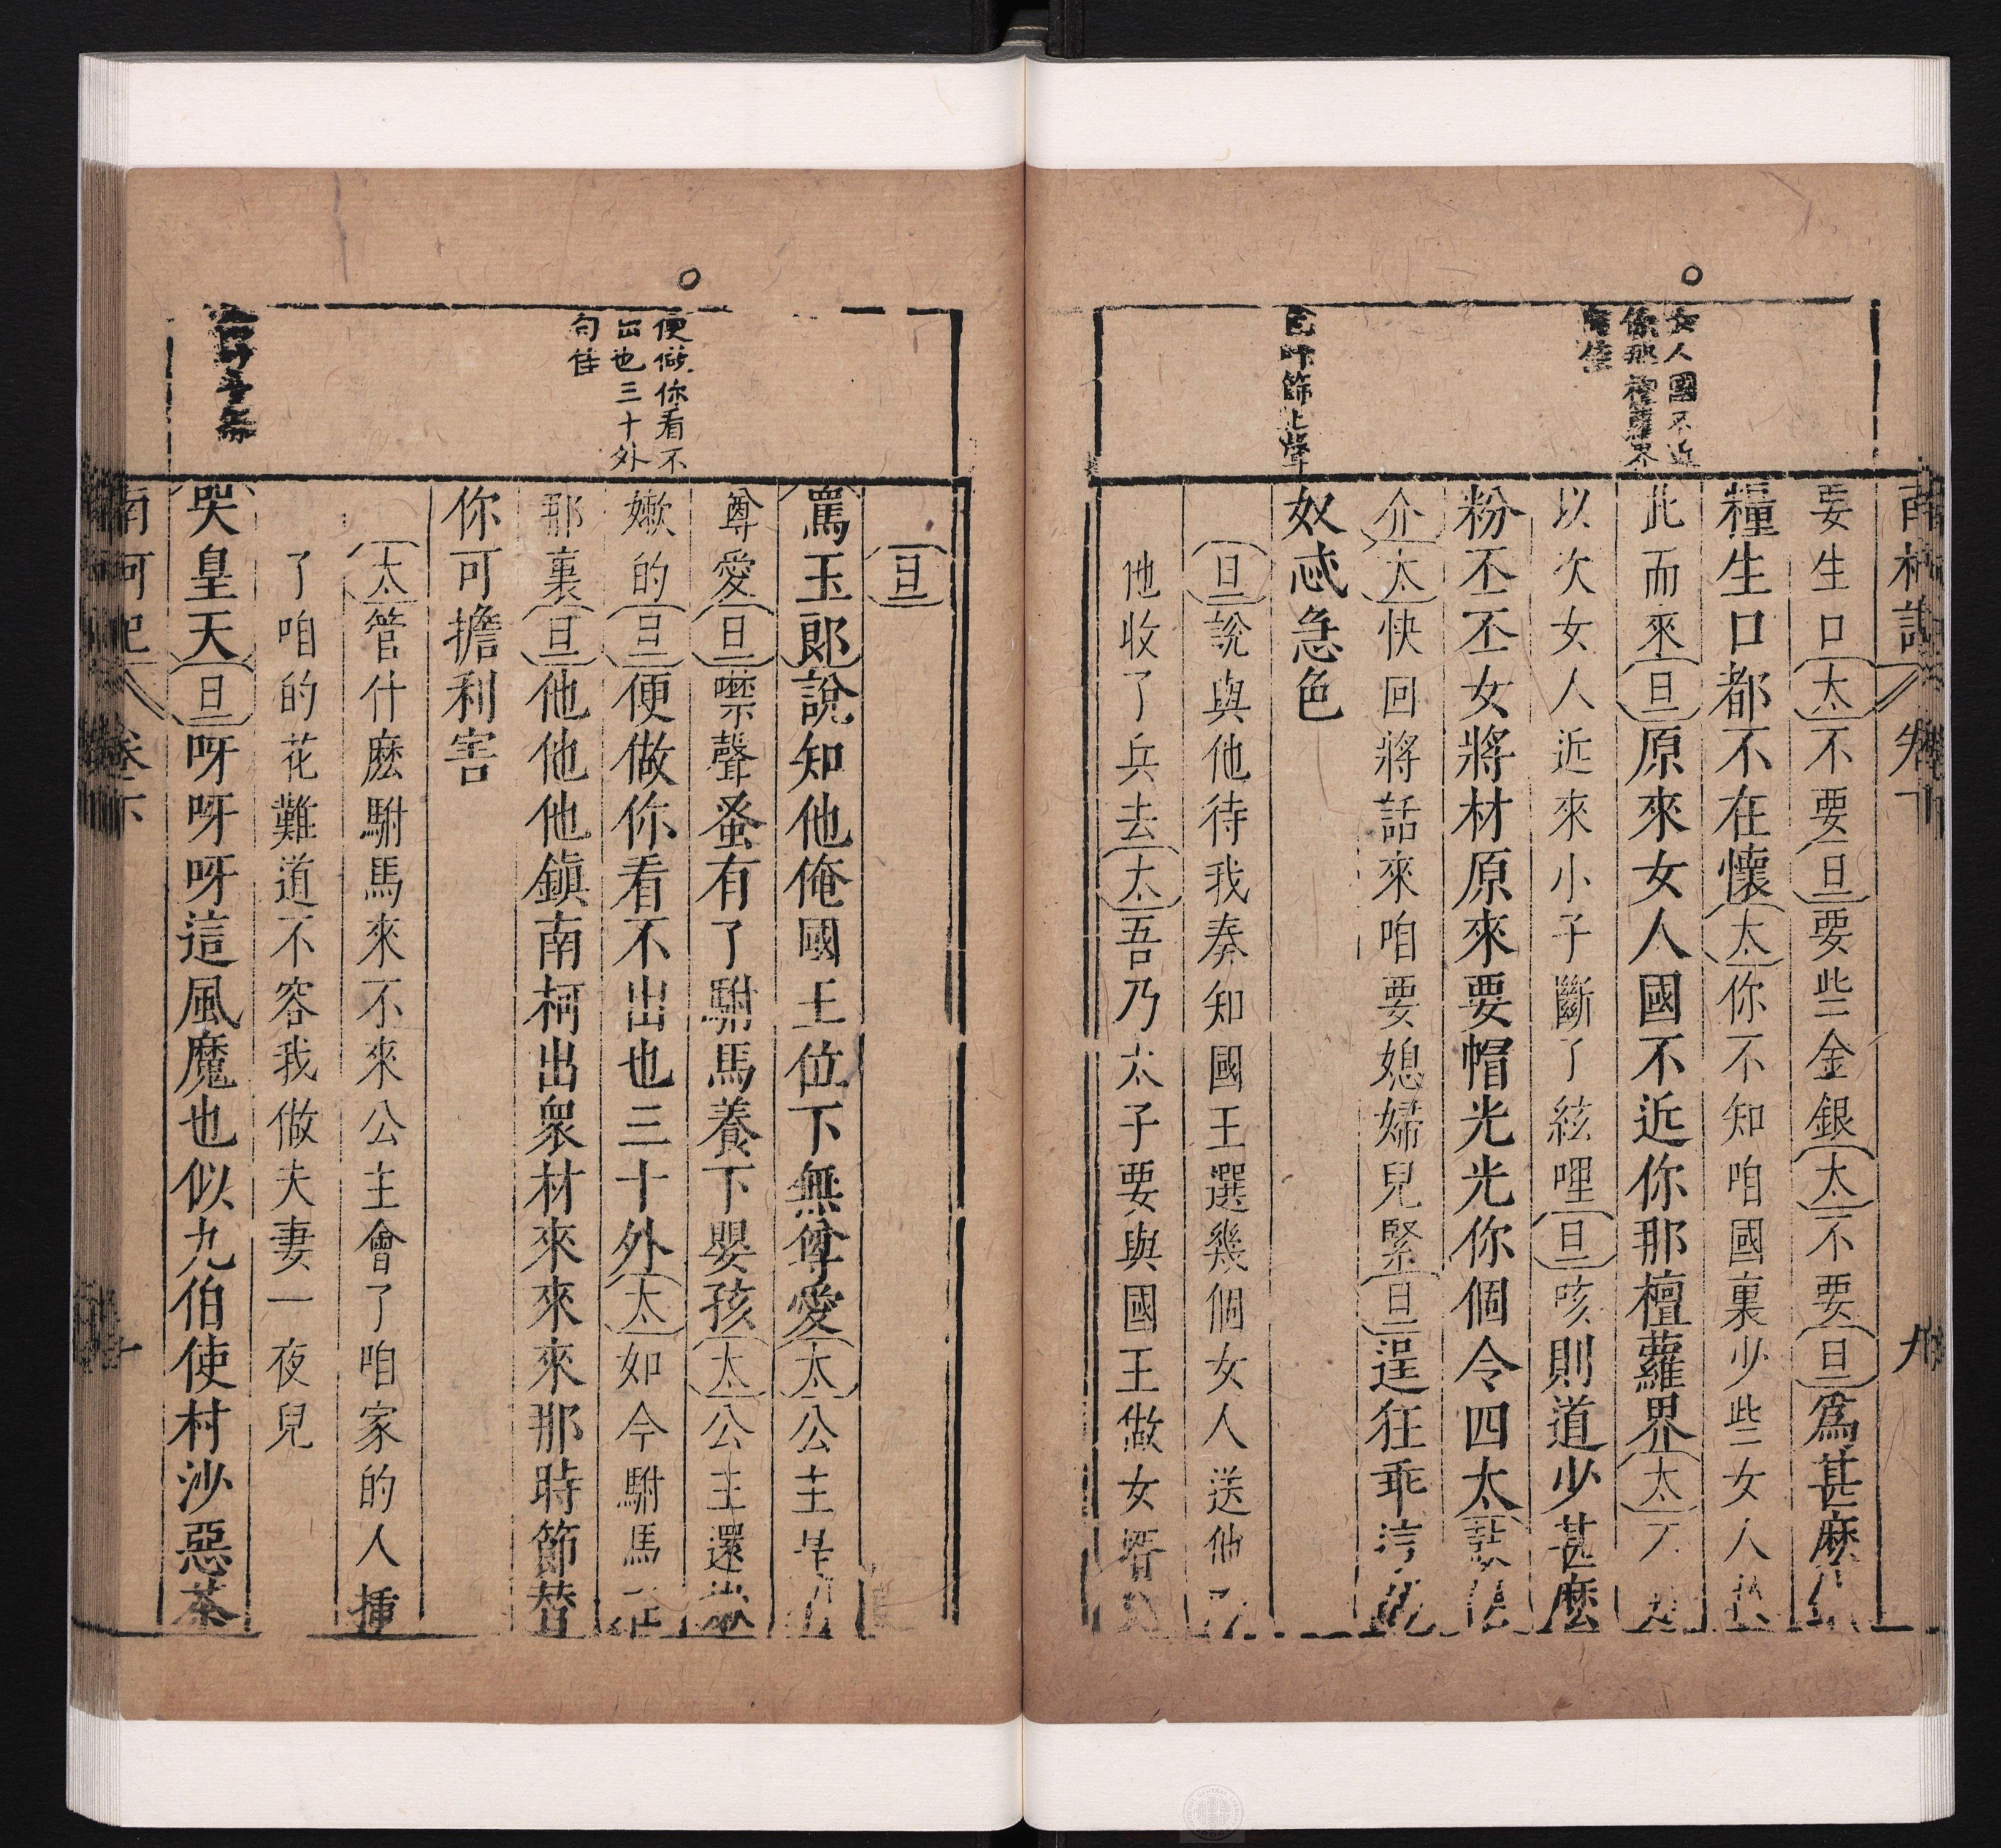 女人國不近
你那檀蘿界
句佳
南柯記 卷下 九
要生口太不要旦要些金銀太不要旦爲甚麽
糧生口都不在懷太你不知咱國裏少些女人
此而來旦原來女人國不近你那檀蘿界太
以次女人近來小子斷了絃哩旦咳則道少甚麽
粉丕丕女將材原來要帽光光你個令四太
介太快回將話來咱要媳婦兒緊旦逞狂乖
奴忒急色
旦說與他待我奏知國王選幾個女人送他
他收了兵去太吾乃太子要與國王做女婿
便做你看不
出也三十外
句佳
旦
罵玉郎說知他俺國王位下無尊愛太公主是
尊愛旦噤聲蚤有了駙馬養下嬰孩太公主還
嫰的旦便做你看不出也三十外太如今駙馬在
那裏旦他他他鎭南柯出衆材來來來那時節替
你可擔利害
太管什麽駙馬來不來公主會了咱家的人揷
了咱的花難道不容我做夫妻一夜兒
哭皇天旦呀呀呀這風魔也似九伯使村沙惡茶
南柯記 卷下 十